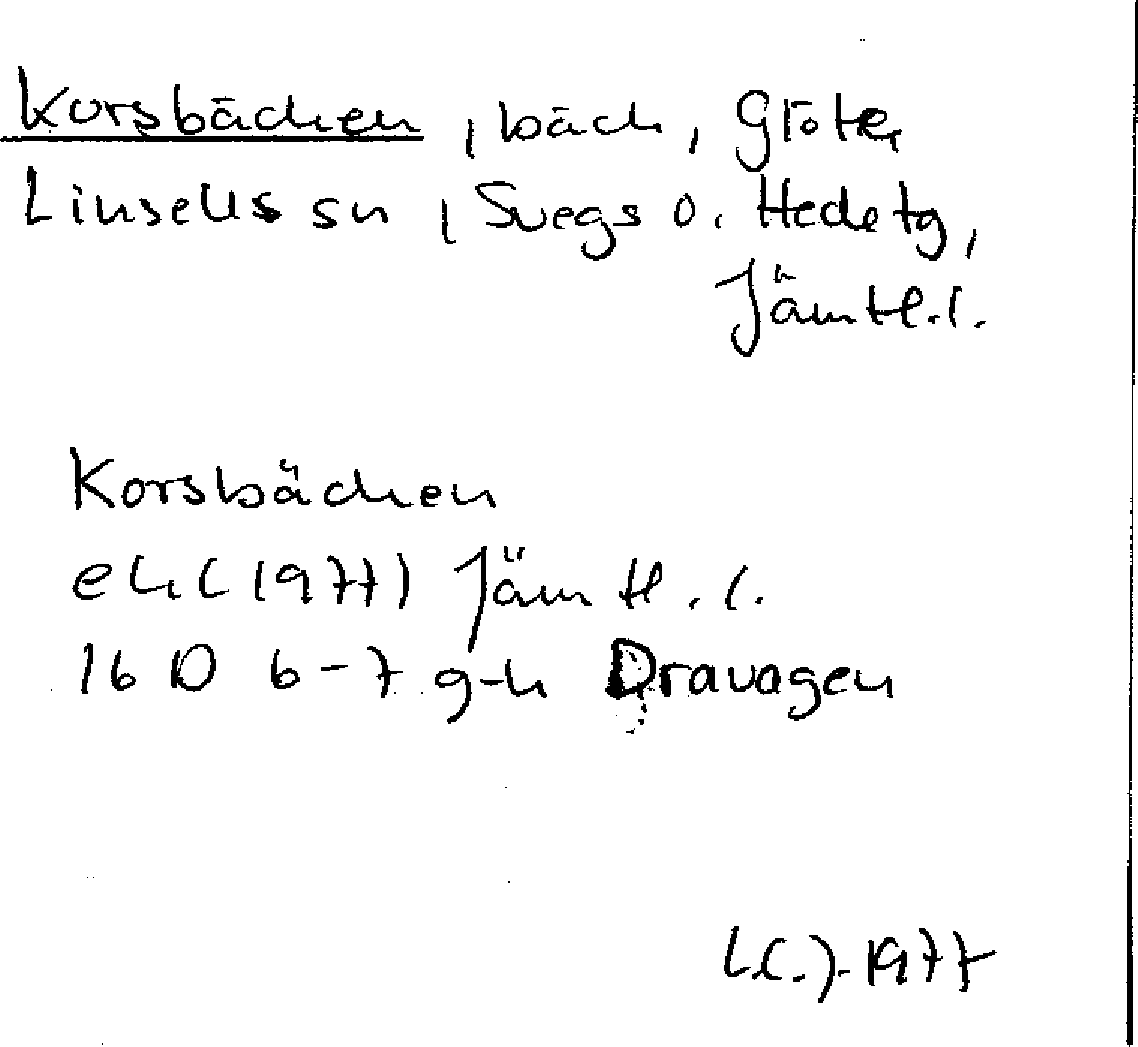 Korsbäcken, bäck, Glöte,
Linsells sn, Svegs o. Hede tg,
Jämtl.l.
Korsbäcken
ek (1977) Jämtl.l.
16 D 6-7 g-h Dravagen
L.C.J. 1977